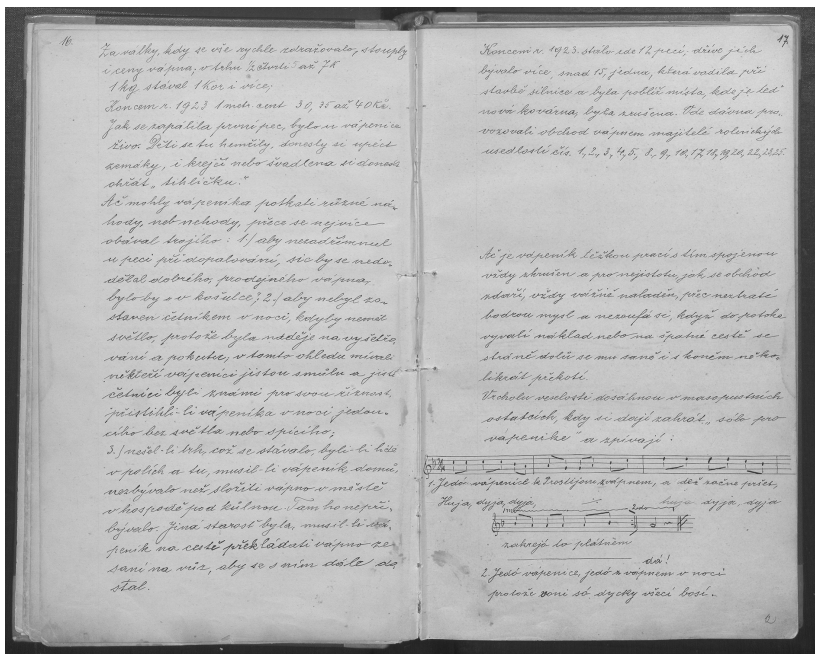 16.
Za války, kdy se vše rychle zdražovalo, stouply
i ceny vápna; v trhu "čtvrti" až 7K
1 kg stával 1 kor i více;
Koncem r. 1923 1 metr. cent 30, 35 až 40 Kč.
Jak se zapálila první pec, bylo u vápenice
živo. Děti se tu hemžily, donesly si upéct
zemáky, i krejčí nebo švadlena si donesla
ohřát "tihličku."
Ač mohly vápeníka potkati různé ná-
hody, neb nehody, přece se nejvíce
obával trojího: 1) aby nezadřímnul
u peci při dopalování, sic by se nedo-
dělal dobrého, prodejného vápna,
bylo by "v košulce"; 2) aby nebyl za-
staven četníkem v noci, kdyby neměl
světlo, protože byla naděje na vyšetřo-
vání a pokutu, v tomto ohledu mívali
někteří vápeníci jistou smůlu a jistí
četníci byli známí pro svou říznost,
přistihli-li vápeníka v noci jedou-
cího bez světla nebo spícího;
3.) nešel-li trh, což se stávalo, byli-li lidé
v polích a tu, musil-li vápeník domů,
nezbývalo než složiti vápno v městě
v hospodě pod kůlnou. Tam ho nepři-
bývalo. Jiná starost byla, musil-li vá-
peník na cestě překládati vápno ze
saní na vůz, aby se s ním dále do-
stal.
17.
Koncem r. 1923. stálo zde 12 pecí, dříve jich
bývalo více, snad 15, jedna, která vadila při
stavbě silnice a byla poblíž místa, kde je teď
nová kovárna, byla zrušena. Ode dávna pro-
vozovali obchod vápnem majitelé rolnických
usedlostí čís. 1, 2, 3, 4, 5, 8, 9, 10, 17, 18, 19, 20, 22,
Ač je vápeník těžkou prací s tím spojenou
vždy zkrušen a pro nejistotu, jak se obchod
zdaří, vždy vážně naladěn, přec neztratí
bodrou mysl a nezoufá si, když do potoka
vyvalí náklad nebo na špatné cestě se
stráně dolů se mu saně i s koněm něko-
likrát překotí.
Vrcholu veselosti dosáhnou v masopustních
ostatcích, kdy si dají zahrát "sólo pro
vápeníke" a zpívají:
1. Jedó vápeníce k Prostějovu z vápnem, a déž začne pršet,
Huja, dyja, dyja, huja dyja, dyja
1mo 2do
zakrejó to plátněm
dá!
2. Jedó vápenice, jedó z vápnem v noci
protože voni só dycky všeci bosí.